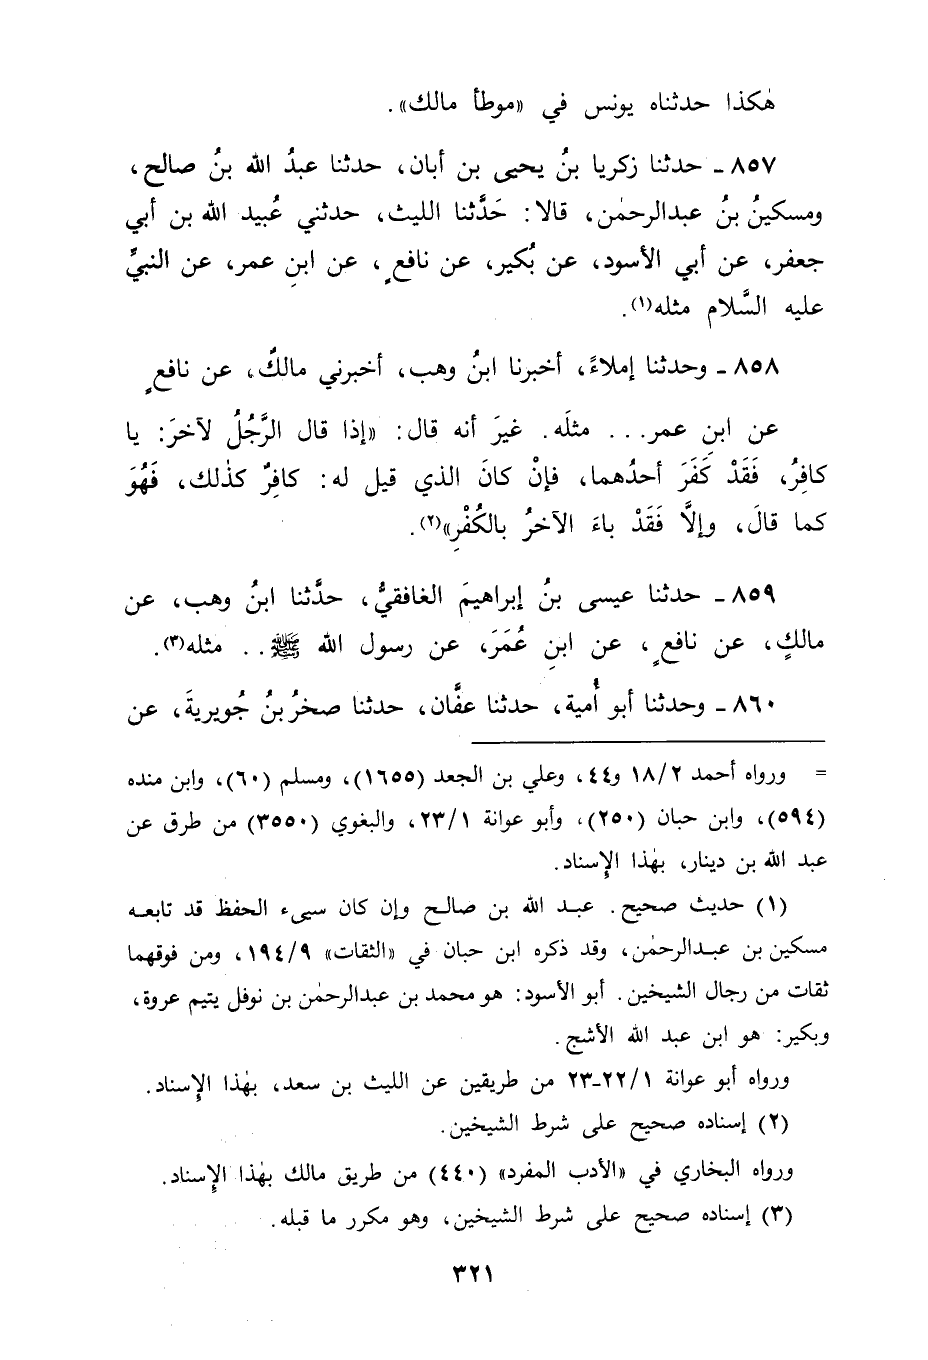 هٰكذا حدثناه يونس في «موطأ مالك».
٨٥٧ ـ حدثنا زكريا بنُ يحيى بن أبان، حدثنا عبدُ الله بنُ صالح،
ومسكينُ بنُ عبدالرحمٰن، قالا: حَدَّثنا الليث، حدثني عُبيد الله بن أبي
جعفر، عن أبي الأسود، عن بُكير، عن نافعٍ، عن ابنِ عمر، عن النبيِّ
عليه السَّلام مثله(١).
٨٥٨ ـ وحدثنا إملاءً، أخبرنا ابنُ وهب، أخبرني مالكٌ، عن نافعٍ
عن ابنِ عمر... مثلَه. غيرَ أنه قال: «إذا قال الرَّجُلُ لآخرَ: يا
كافِرُ، فَقَدْ كَفَرَ أحدُهما، فإنْ كانَ الذي قيل له: كافِرٌ كذٰلك، فَهُوَ
كما قالَ، وإلاَّ فَقَدْ باءَ الآخرُ بالكُفْرِ»(٢).
٨٥٩ ـ حدثنا عيسى بنُ إبراهيمَ الغافقيُّ، حدَّثنا ابنُ وهب، عن
مالكٍ، عن نافعٍ، عن ابنِ عُمَرَ، عن رسول الله ﷺ.. مثله(٣).
٨٦٠ ـ وحدثنا أبو أُمية، حدثنا عفَّان، حدثنا صخرُ بنُ جُويريةَ، عن
= ورواه أحمد ١٨/٢ و٤٤، وعلي بن الجعد (١٦٥٥)، ومسلم (٦٠)، وابن منده
(٥٩٤)، وابن حبان (٢٥٠)، وأبو عوانة ٢٣/١، والبغوي (٣٥٥٠) من طرق عن
عبد الله بن دينار، بهٰذا الإِسناد.
(١) حديث صحيح. عبد الله بن صالح وإن كان سيىء الحفظ قد تابعه
مسكين بن عبدالرحمٰن، وقد ذكره ابن حبان في «الثقات» ١٩٤/٩، ومن فوقهما
ثقات من رجال الشيخين. أبو الأسود: هو محمد بن عبدالرحمٰن بن نوفل يتيم عروة،
وبكير: هو ابن عبد الله الأشج.
ورواه أبو عوانة ٢٢/١-٢٣ من طريقين عن الليث بن سعد، بهٰذا الإِسناد.
(٢) إسناده صحيح على شرط الشيخين.
ورواه البخاري في «الأدب المفرد» (٤٤٠) من طريق مالك بهٰذا الإِسناد.
(٣) إسناده صحيح على شرط الشيخين، وهو مكرر ما قبله.
٣٢١